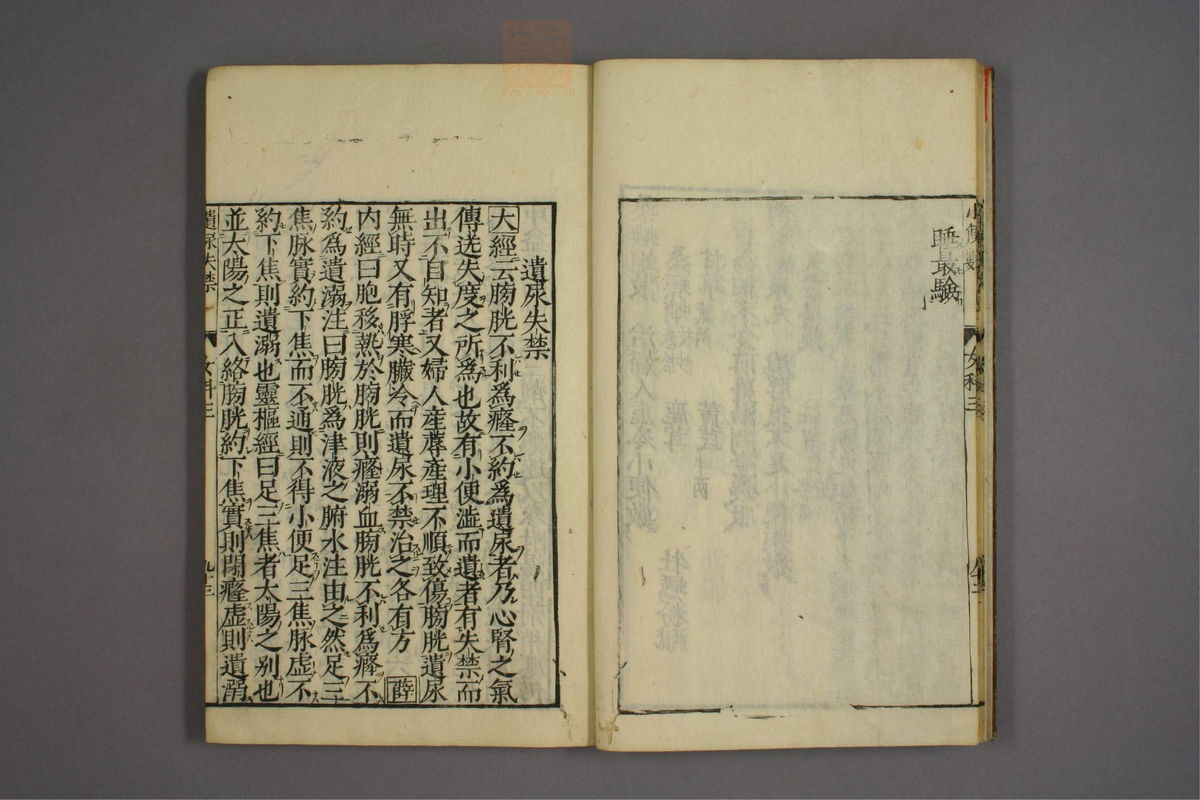 小便數
女科三
睡最驗
遺尿失禁
大經云胞胱不利爲癃不約爲遺尿者乃心腎之氣
傳送失度之所爲也故有小便澁而遺者有失禁而
出不自知者又婦人産蓐産理不順致傷膀胱遺尿
無時又有脬寒臟冷而遺尿不禁治之各有方 薛
内經曰胞移熱於膀胱則癃溺血膀胱不利爲癃不
約爲遺溺注曰膀胱爲津液之腑水注由之然足三
焦脉實約下焦而不通則不得小便足三焦脉虚不
約下焦則遺溺也靈樞經曰足三焦者太陽之别也
並太陽之正入絡膀胱約下焦實則閉癃虚則遺溺
遺尿失禁
女科三
九十三